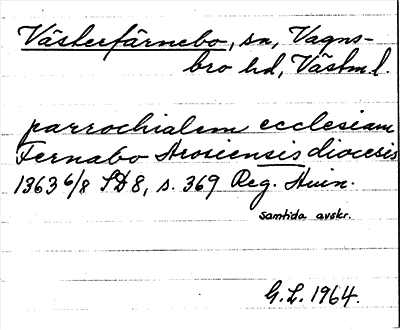 Västerfärnebo, sn, Vagns-
bro hd, Västml.
parrochialem ecclesiam
Fernabo Arosiensis diocesis
1363 6/8 SD 8, s. 369 Reg. Avin.
Samtida avskr.
G.L. 1964.